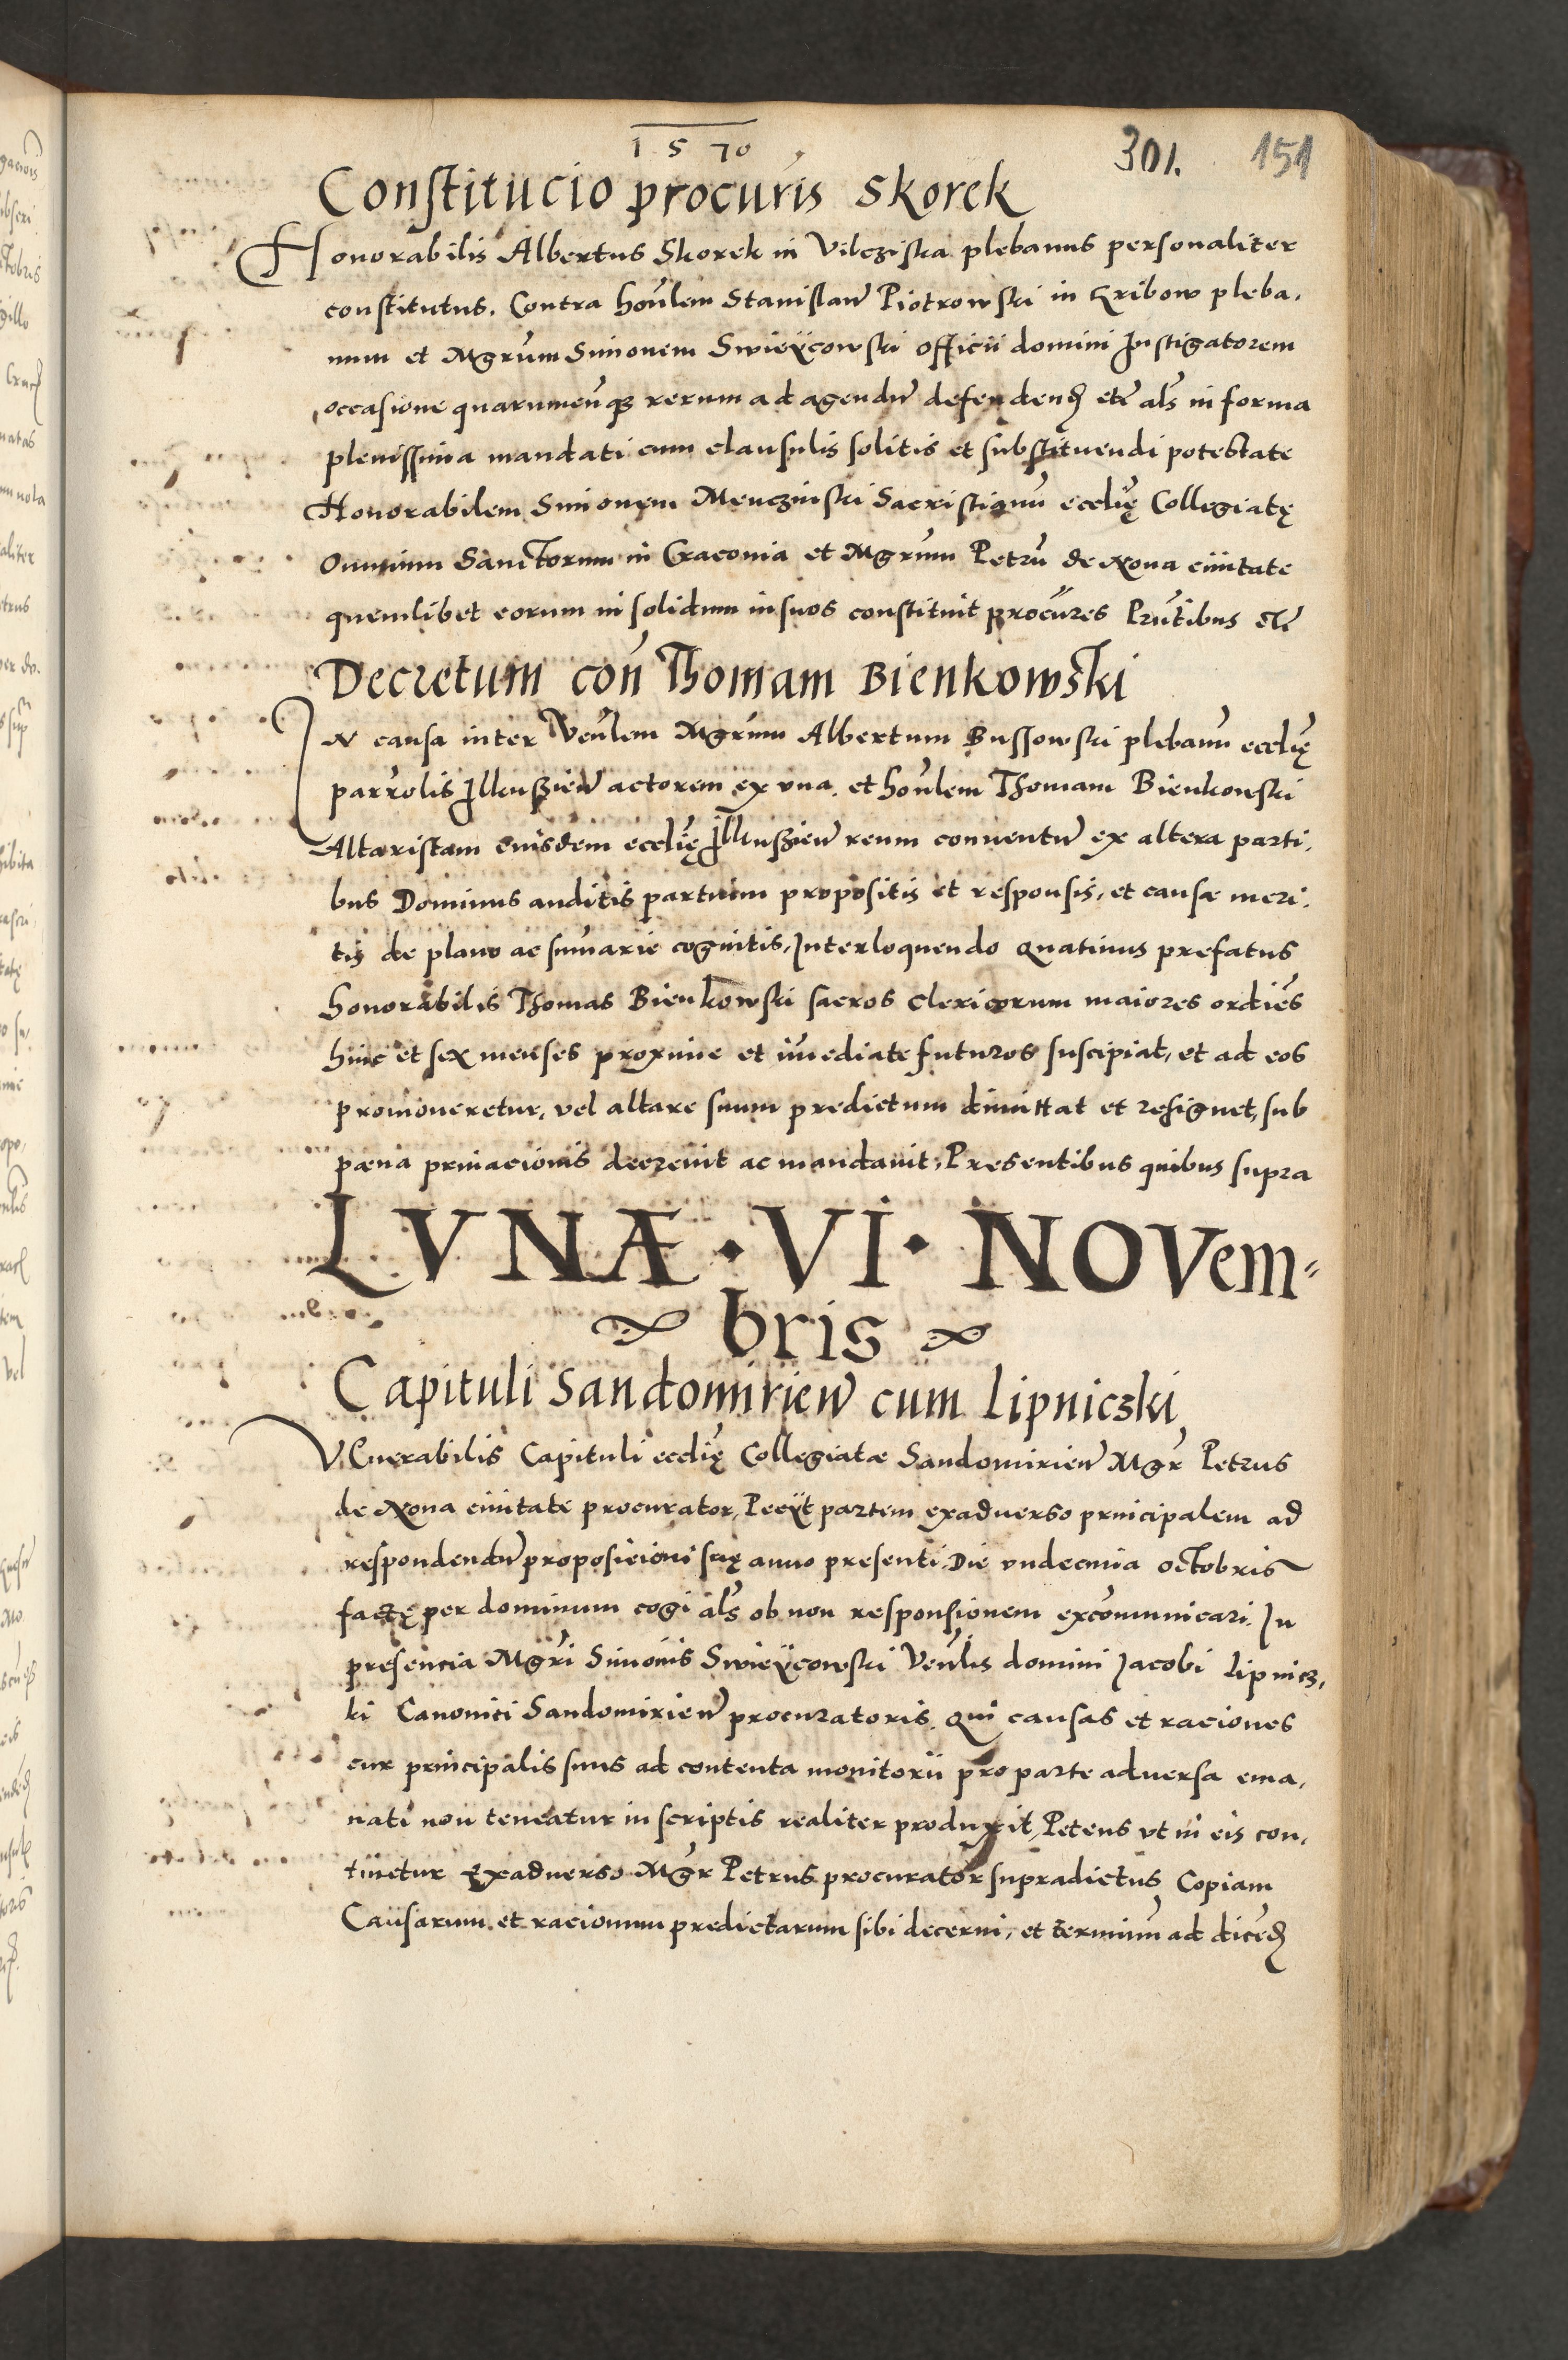 1570
301. 151
Constitucio procuris Skorek
Honorabilis Albertus Skorek in Vilcziska plebanus personaliter
constitutus. Contra honlem Stanislaum Piotrowski in Gribow pleba,
num et Mgrum Simonem Swieÿcowski officii domini Instigatorem
occasione quarumcunque rerum ad agendum defendend etc als in forma
plenissima mandati cum clausulis solitis et substituendi potestate
Honorabilem Simonem Menczinski Sacristianum ecclię Collegiatę
Omnium Sanctorum in Craconia et Mgrum Petru de Nova civitate
quemlibet eorum in solidum in suos constituit procures Pruntibus etc
Decretum con Thomam Bienkowski
IN causa inter Venlem Mgrum Albertum Bussowski plebanu ecclię
parrolis Ilkussien actorem ex una. et honlem Thomam Bienkowski
Altaristam eiusdem ecclię Ilkussien reum conventum ex altera parti,
bus Dominus auditis partium propositis et responsis, et causæ meri,
tis de plano ac sumarie cognitis, Interloquendo quatinus prefatus
honorabilis Thomas Bienkowski sacros clericorum maiores ordies
hinc et sex menses proxime et imediate futuros suscipiat, et ad eos
promoveretur, vel altare suum predictum dimittat et resignet, sub
pæna privacionis decrevit ac mandavit, Presentibus quibus supra
LVNÆ · VI · NOVem-
bris
Capituli Sandomirien cum Lipniczki
VEnerabilis Capituli ecclię Collegiatæ Sandomirien Mgr Petrus
de Nova civitate procurator, Peeÿt partem exadverso principalem ad
respondendum proposicioni suę anno presenti Die undecima octobris
factę per dominum cogi als ob non responsionem excomunicari. In
presencia Mgri Simonis Swieÿcowski Venlis domini Jacobi Lipnicz,
ki Canonici Sandomirien procuratoris. qui causas et raciones
cur principalis suus ad contenta monitorii pro parte adversa ema,
nati non teneatur in scriptis realiter produxit, Petens vt in eis con,
tinetur Exadverso Mgr Petrus procurator supradictus Copiam
Causarum et racionum predictarum sibi decerni, et terminum ad dicend